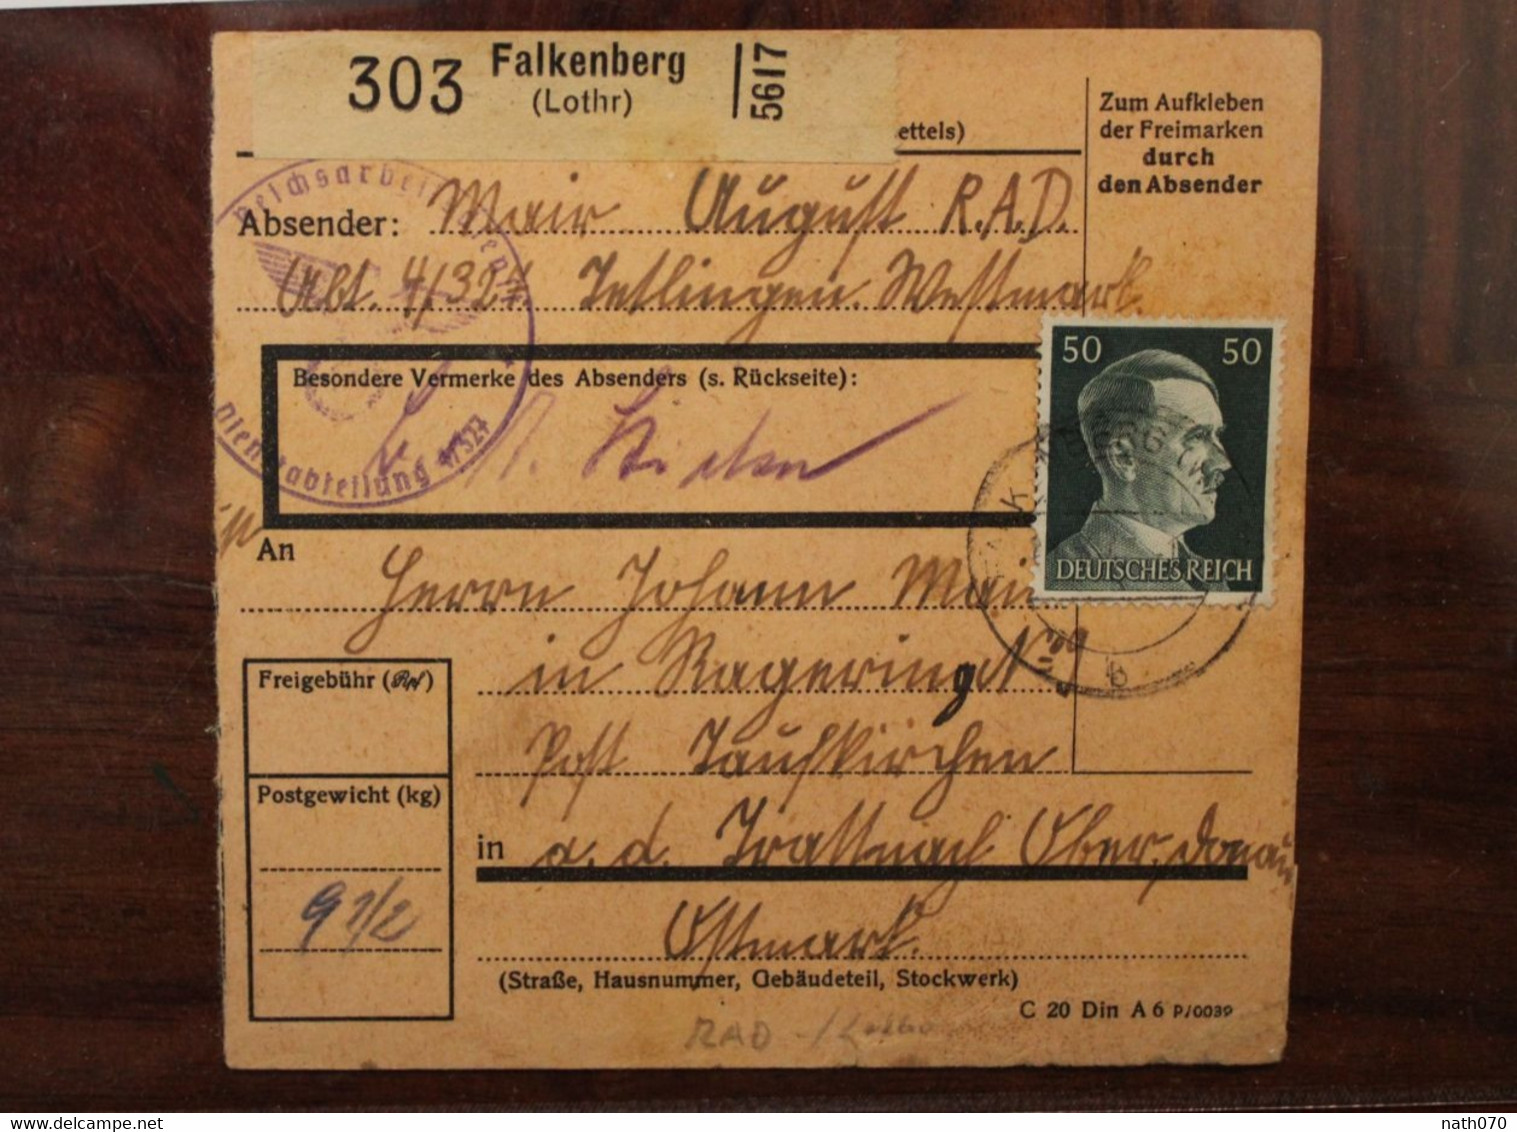 303 Falkenberg
(Lothr)
5617
ettels)
Zum Aufkleben
der Freimarken
durch
den Absender
Reichsarbeitsdienst
Absender: Mair August R.A.D.
Abt. 4/327 Tetlingen. Westmark.
Besondere Vermerke des Absenders (s. Rückseite):
Dienstabteilung 4/327
50 50
DEUTSCHES REICH
b
An
Herrn Johann Mair
in Ragering
Post Taufkirchen
in a. d. Trattnach Ober. Donau
Ostmark.
(Straße, Hausnummer, Gebäudeteil, Stockwerk)
Freigebühr (Rpf)
Postgewicht (kg)
9 1/2
C 20 Din A 6 P/0039
RAD
nath070